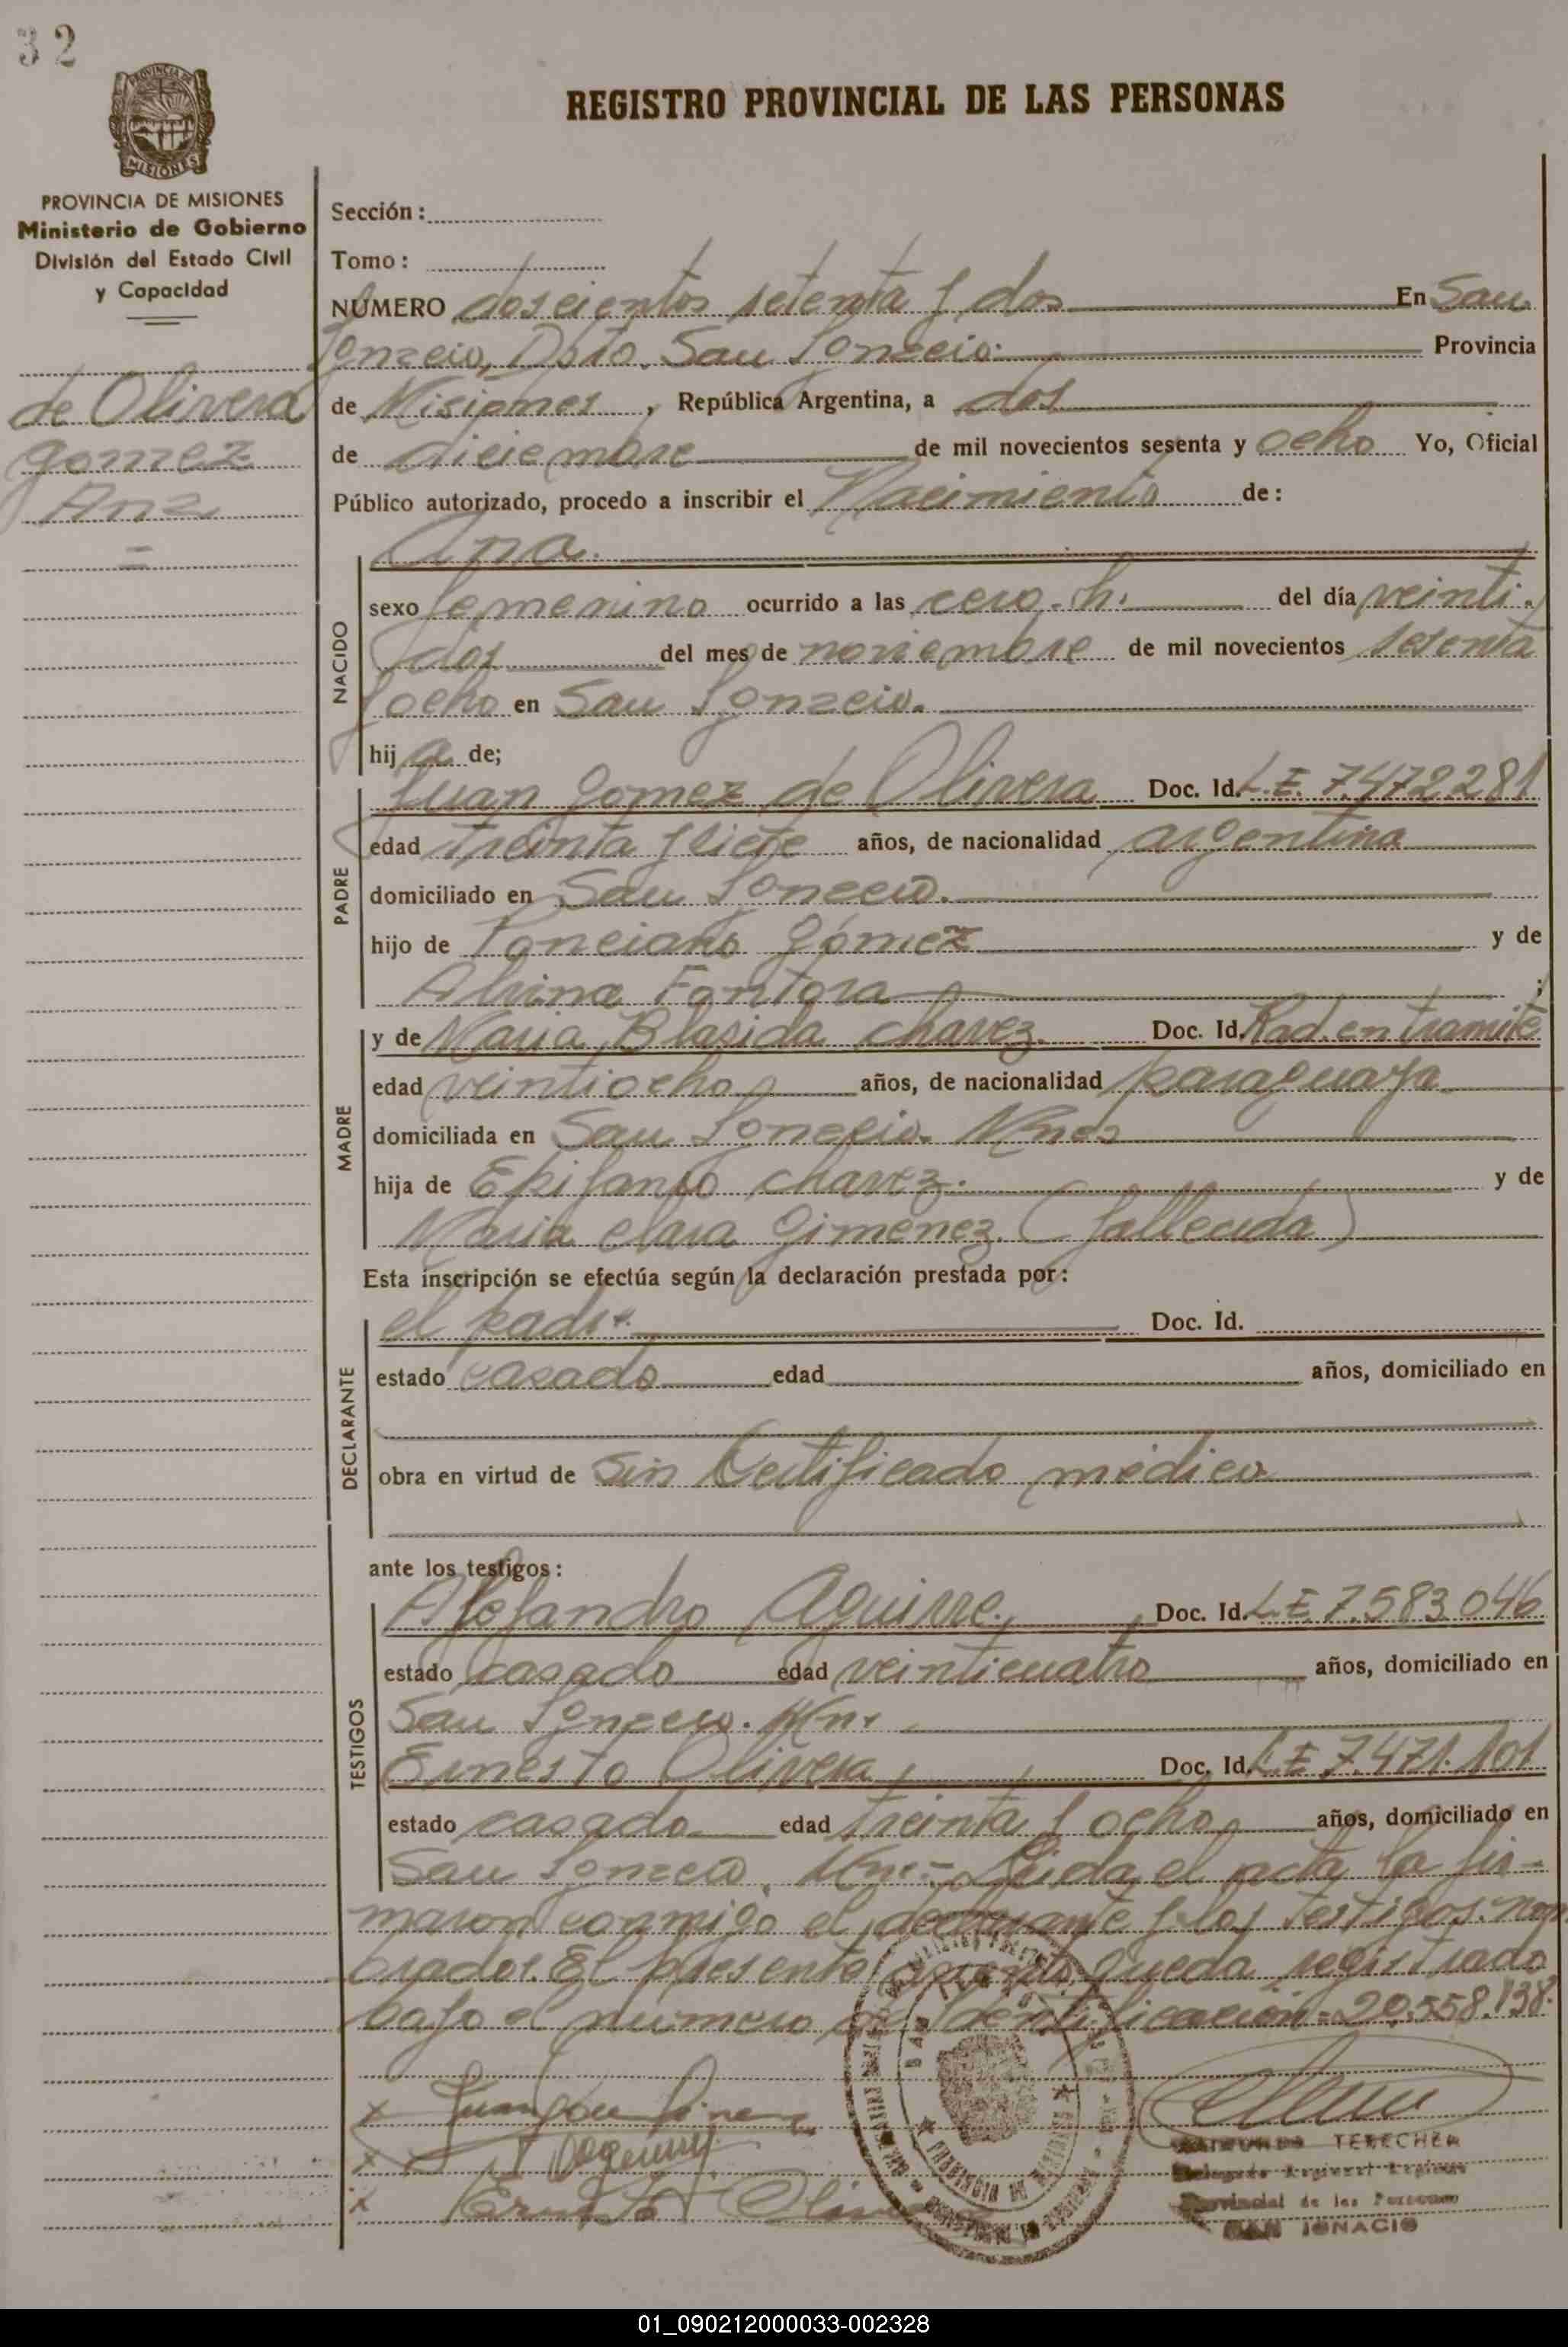 32
PROVINCIA DE
MISIONES
REGISTRO PROVINCIAL DE LAS PERSONAS
PROVINCIA DE MISIONES
Ministerio de Gobierno
División del Estado Civil
y Capacidad
de Olivera
Gomez
Ana
=
Sección:
Tomo:
NUMERO doscientos setenta y dos En San
Ignacio, Dpto. San Ignacio. Provincia
de Misiones, República Argentina, a dos
de diciembre de mil novecientos sesenta y ocho Yo, Oficial
Público autorizado, procedo a inscribir el Nacimiento de:
Ana.
NACIDO
sexo femenino ocurrido a las cero. h. del día veinti-
dos del mes de noviembre de mil novecientos sesenta
y ocho en San Ignacio.
hija de;
PADRE
Juan Gomez de Olivera Doc. Id. L.E. 7.472.281
edad treinta y siete años, de nacionalidad argentina
domiciliado en San Ignacio.
hijo de Ponciano Gómez y de
Alvina Fontora ;
MADRE
y de Maria Blasida Chavez. Doc. Id. Rad. en tramite
edad veintiocho años, de nacionalidad paraguaya
domiciliada en San Ignacio. Mnes
hija de Epifanio Chavez. y de
Maria Clara Gimenez. (fallecida)
Esta inscripción se efectúa según la declaración prestada por:
DECLARANTE
el padre. Doc. Id.
estado casado edad años, domiciliado en
obra en virtud de Sin Certificado médico
ante los testigos:
TESTIGOS
Alejandro Aguirre. Doc. Id. L.E. 7.583.046
estado casado edad veinticuatro años, domiciliado en
San Ignacio. Mnes
Ernesto Olivera Doc. Id. L.E 7.471.101
estado casado edad treinta y ocho años, domiciliado en
San Ignacio, Mnes.- Leida el acta la fir-
maron conmigo el declarante y los testigos nom
brados. El presente asiento queda registrado
bajo el número de identificación = 20.558.138.
x Juan
x
x Ernesto Olivera
PROVINCIA DE MISIONES
RAIMUNDO TERECHER
Delegado Regional Registro
Provincial de las Personas
SAN IGNACIO
01_090212000033-002328